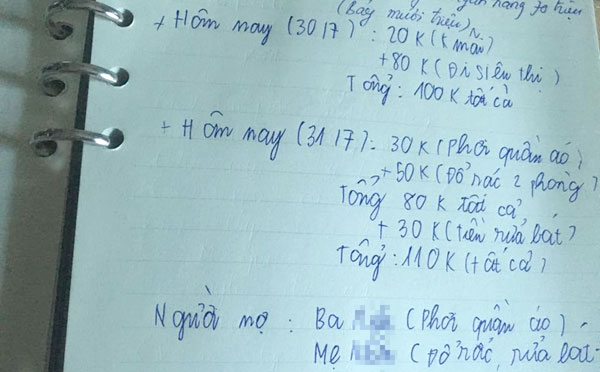 hàng 70 triệu
(Bảy mươi triệu)
+ Hôm nay (30/7): 20 K (K mãi)
+80 K (Đi siêu thị)
Tổng: 100 K tất cả
+ Hôm nay (31/7): 30 K (Phơi quần áo)
+50 K (Đổ rác 2 phòng)
Tổng 80 K tất cả
+ 30 K (tiền rửa bát)
Tổng: 110 K (tất cả)
Người nợ: Ba (Phơi quần áo)
Mẹ (Đổ rác, rửa bát